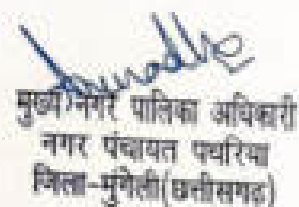 मुख्य नगर पालिका अधिकारी
नगर पंचायत पथरिया
जिला-मुंगेली(छत्तीसगढ़)